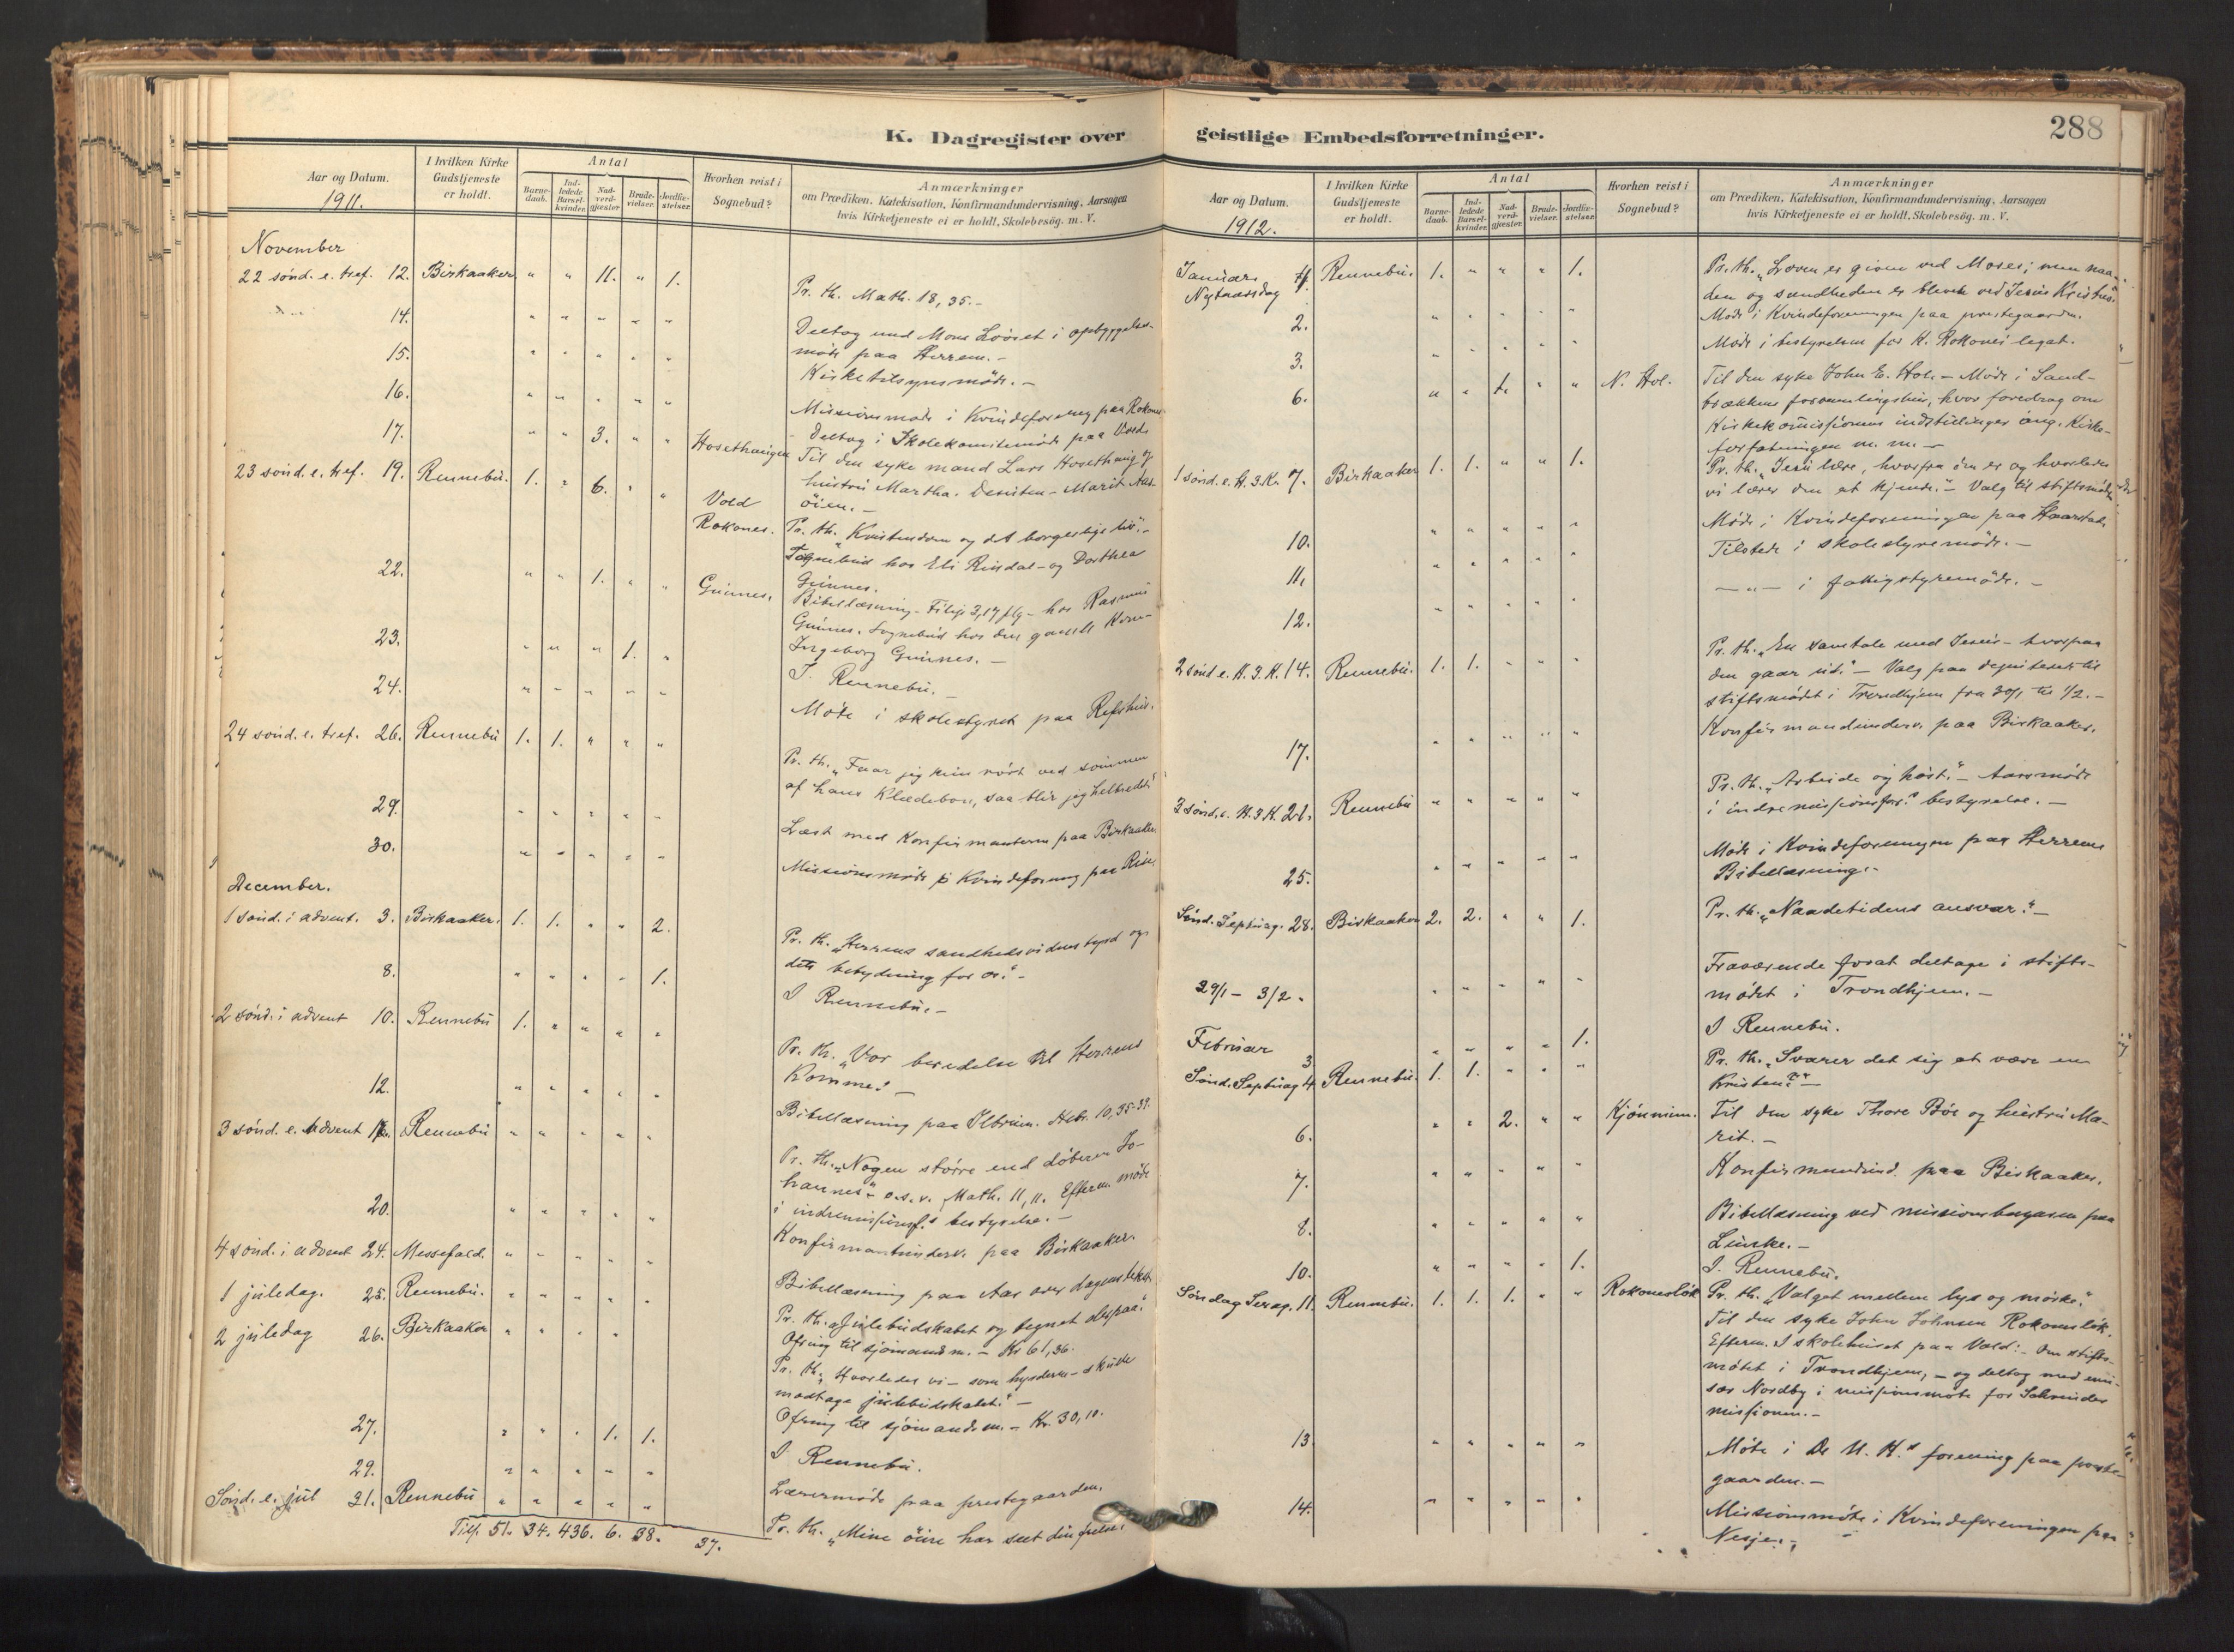 K. Dagregister over
Aar og Datum.
1911.
I hvilken Kirke Gudstjeneste er holdt.
Antal
Barne-daab.
Ind-ledede Barsel-kvinder.
Nad-verd-gjæster.
Brude-vielser.
Jordfæ-stelser.
Hvorhen reist i Sognebud?
Anmærkninger
om Prædiken, Katekisation, Konfirmandundervisning, Aarsagen
hvis Kirketjeneste ei er holdt, Skolebesög. m. V.
November
22 sönd. e. tref. 12. Birkaaker " " 11. " 1.
Pr. th. Math. 18, 35.-
14. " " " " "
Deltog med Mons Lööset i opbyggelses-
møte paa Herrem.-
15. " " " " "
Kirketilsynsmöde.-
16. " " " " "
Missionsmøde i Kvindeforening paa Rokones
- Deltog i Skolekomitemøde paa Vold
17. " " 3. " " Hosethaugen
Til den syke mand Lars Hosethaug og
hustru Martha.
öien.-
23 sönd. e. tref. 19. Rennebu. 1. " 6. " " Vold
Rokones.
Pr. th. "Kristendom og det borgerlige liv".-
Sognebud hos Eli Rindal - og Dorthea
Gunnes.
22. " " 1. " " Gunnes.
Bibellæsning - Filip 3,17 flg - hos Rasmus
Gunnes. Sognebud hos den gamle Kone-
Ingeborg Gunnes.-
23. " " " 1. "
I Rennebu.-
24. " " " " "
Møte i skolestyret paa Refshus.
24 sönd. e. tref. 26. Rennebu 1. 1. " " "
Pr. th. "Faar jeg kun rört ved sömmen
af hans Klædebon, saa blir jeg helbredet"
29. " " " " "
Læst med Konfirmanterne paa Birkaaker.
30. " " " " "
Missionsmøde i Kvindeforening paa Rise.
December.
1 sönd. i advent. 3. Birkaaker. 1. 1. " " 2.
Pr. th. "Herrens sandhedsvidnesbyrd og
dets betydning for os".-
8. " " " " 1.
I Rennebu.-
2 sönd. i advent 10. Rennebu 1. " " " "
Pr. th. "Vor beredelse til Herrens
Komme".-
12. " " " " "
Bibellæsning paa Ilbrun. Hebr. 10, 35-39.
3 sönd. e. advent 17. Rennebu " " " " "
Pr. th. "Nogen större end döberen Jo-
hannes" o.s.v. Math. 11, 11. Efterm. möde
i indremissionsf.s bestyrelse.-
20. " " " " "
Konfirmantunderv. paa Birkaaker.
4 sönd. i advent 24. Messefald. " " " " "
Bibellæsning paa Aas over dagens tekst
1 juledag. 25. Rennebu. " " " " "
Pr. th. "Julebudskabet og tegnet derpaa".
Ofring til sjömandsm. - Kr 61,36.
2 juledag 26. Birkaaker " " " "
Pr. th. "Hvorledes vi - som hyrderne - skulde
modtage julebudskabet".-
Ofring til sjömandsm. - Kr. 30,10.
27. " " " 1. 1.
I Rennebu.
29. " " " " "
Lærermöde paa prestegaarden.
Sönd. e. jul 31. Rennebu " " " " "
Pr. th. "Mine öine har seet din frelse"
Tils. 51. 34. 436. 6. 38. 37.
geistlige Embedsforretninger.
288
Aar og Datum.
1912.
I hvilken Kirke Gudstjeneste er holdt.
Antal
Barne-daab.
Ind-ledede Barsel-kvinder.
Nad-verd-gjæster.
Brude-vielser.
Jordfæ-stelser.
Hvorhen reist i Sognebud?
Anmærkninger
om Prædiken, Katekisation, Konfirmandundervisning, Aarsagen
hvis Kirketjeneste ei er holdt, Skolebesög. m. V.
Januar.
Nytaarsdag 1. Rennebu. 1. " " " 1.
Pr. th. "Loven er given ved Moses; men naa-
den og sandheden er bleven ved Jesus Kristus"
2. " " " " "
Möde i Kvindeforeningen paa prestegaarden.
3. " " " " "
Møde i bestyrelsen for K. Rokones legat.
6. " " 1. " " N. Hol.
Til den syke John E. Hol. - Møde i Sand-
brækkens forsamlingshus, hvor foredrag om
Kirkekommissionens indstillinger ang. Kirke-
forfatningen m. m.-
1 sönd. e. H. 3. K. 7. Birkaaker 1. 1. " " 1.
Pr. th. "Jesu lære, hvorfra den er og hvorledes
vi lærer den at kjende". - Valg til stiftsmöde
10. " " " " "
Møde i Kvindeforeningen paa Haarstad.
11. " " " " "
Tilstede i skolestyremöde.-
12. " " " " "
- " - i fattigstyremöde.-
2 sönd e. H. 3. K. 14. Rennebu. 1. 1. " " "
Pr. th. "En samtale med Jesus - hvorpaa
den gaar ud". - Valg paa deputerede til
stiftsmødet i Trondhjem fra 30/1 til 1/2.-
17. " " " " "
Konfirmandunderv. paa Birkaaker.
3 sönd. e. H. 3 K. 21. Rennebu " " " " "
Pr. th. "Arbeide og höst". - Aarsmöde
i indremissionsfor.s bestyrelse.-
25. " " " " "
Møde i Kvindeforeningen paa Herrem
Bibellæsning.-
Sönd. Septuag. 28. Birkaaker 2. 2. " " 1.
Pr. th. "Naadetidens ansvar".-
29/1 - 3/2. " " " " "
Fraværende forat deltage i stifts-
mødet i Trondhjem.-
Februar
3 " " " " 1.
I Rennebu.
Sönd. Septuag 4. Rennebu. 1. 1. " " "
Pr. th. "Svarer det sig at være en
Kristen?"-
6. " " 2. " " Kjönnim.
Til den syke Thore Böe og hustru Ma-
rit.-
7. " " " " "
Konfirmandund. paa Birkaaker.
8. " " " " "
Bibellæsning ved missionsbazaren paa
Lunke.-
10. " " " " 1.
I. Rennebu.
Söndag Sexag. 11. Rennebu. 1. 1. 1. " " Rokonesløk
Pr. th. "Valget mellem lys og mørke".
Til den syke John Johnsen Rokonesløk.
Efterm. I skolehuset paa Vold: - Om stifts-
møtet i Trondhjem, - og deltog med emi-
sær Nordby i missionsmøte for Selvindes
missionen.-
13. " " " " "
Møte i De U. K.s forening paa preste-
gaarden.-
14. " " " " "
Missionsmøte i Kvindeforeningen paa
Nesje.-